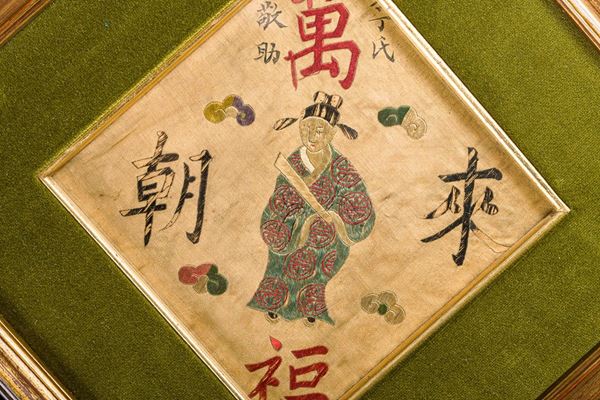 氏
萬
敬助
福
來
朝